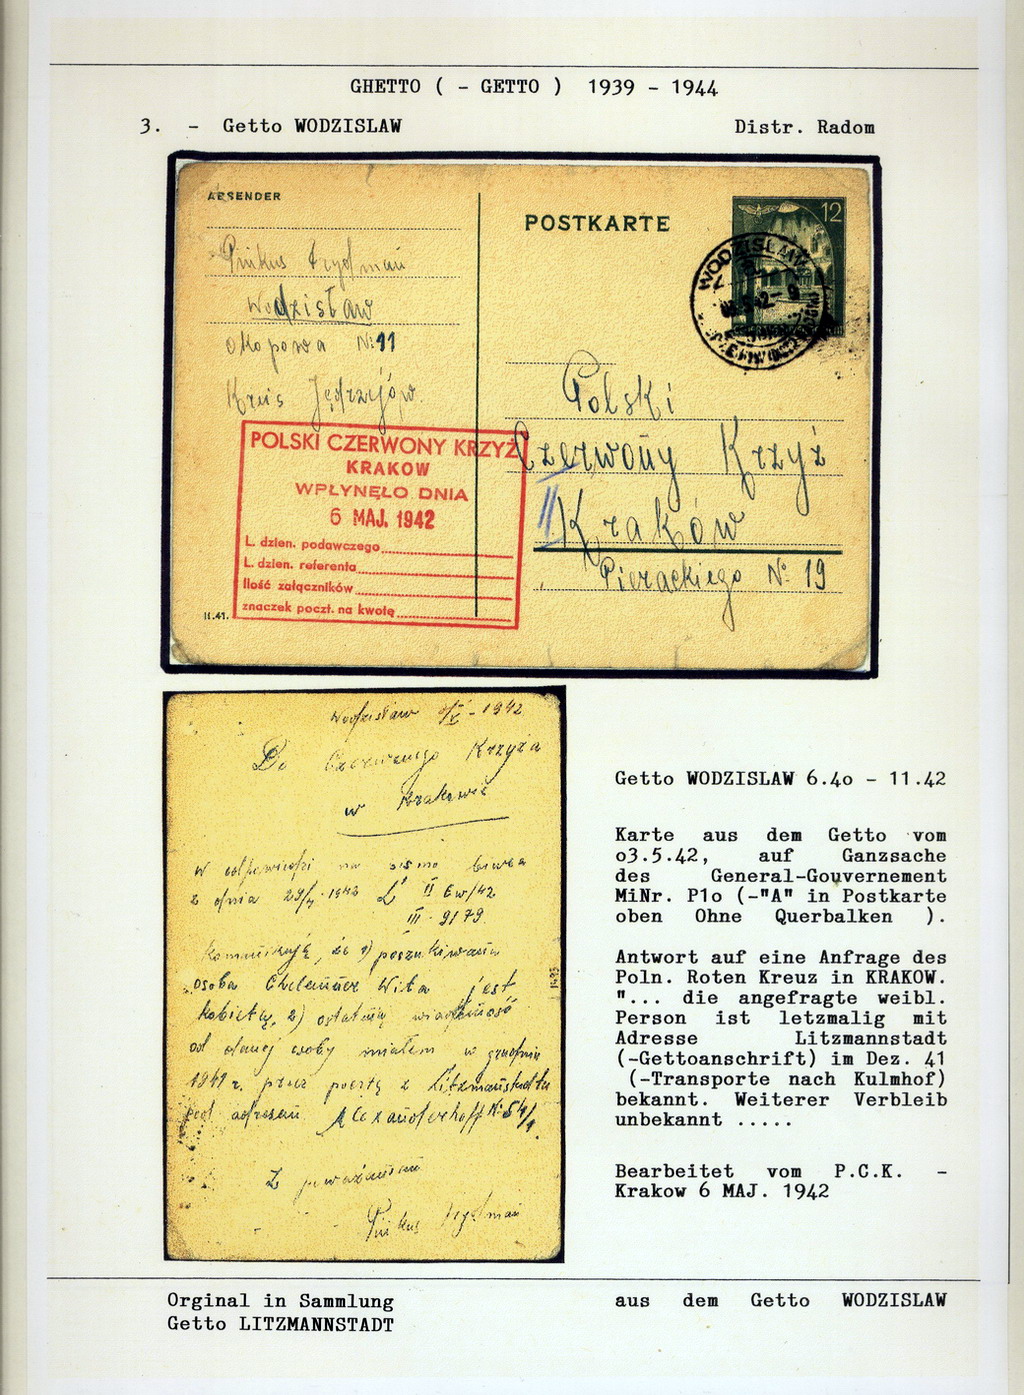 GHETTO ( - GETTO ) 1939 - 1944
3. - Getto WODZISLAW
Distr. Radom
ABSENDER
Pinkus Frydman
Wodzisław
Okopowa № 11
Kreis Jędrzejów
POSTKARTE
12
WODZISŁAW
Polski
Czerwony Krzyż
Kraków
Pierackiego № 19
POLSKI CZERWONY KRZYŻ
KRAKOW
WPŁYNĘŁO DNIA
6 MAJ. 1942
L. dzien. podawczego
L. dzien. referenta
Ilość załączników
znaczek poczt. na kwotę
II.41.
Wodzisław 1942
Do Czerwonego Krzyża
w Krakowie
W odpowiedzi na pismo biura
z dnia 29/ 1942 L II 6w/42
III - 9179.
Komunikuję, że 1) poszukiwana
osoba Wita jest
kobietą, 2) ostatnią wiadomość
od danej osoby miałem w grudniu
1941 r. przez pocztę z Litzmannstadtu
pod adresem Alexanderhoff № 54/1.
Z poważaniem
Pinkus Frydman
Getto WODZISLAW 6.4o - 11.42
Karte aus dem Getto vom
o3.5.42, auf Ganzsache
des General-Gouvernement
MiNr. P1o (-"A" in Postkarte
oben Ohne Querbalken ).
Antwort auf eine Anfrage des
Poln. Roten Kreuz in KRAKOW.
"... die angefragte weibl.
Person ist letzmalig mit
Adresse Litzmannstadt
(-Gettoanschrift) im Dez. 41
(-Transporte nach Kulmhof)
bekannt. Weiterer Verbleib
unbekannt .....
Bearbeitet vom P.C.K. -
Krakow 6 MAJ. 1942
Orginal in Sammlung
Getto LITZMANNSTADT
aus dem Getto WODZISLAW